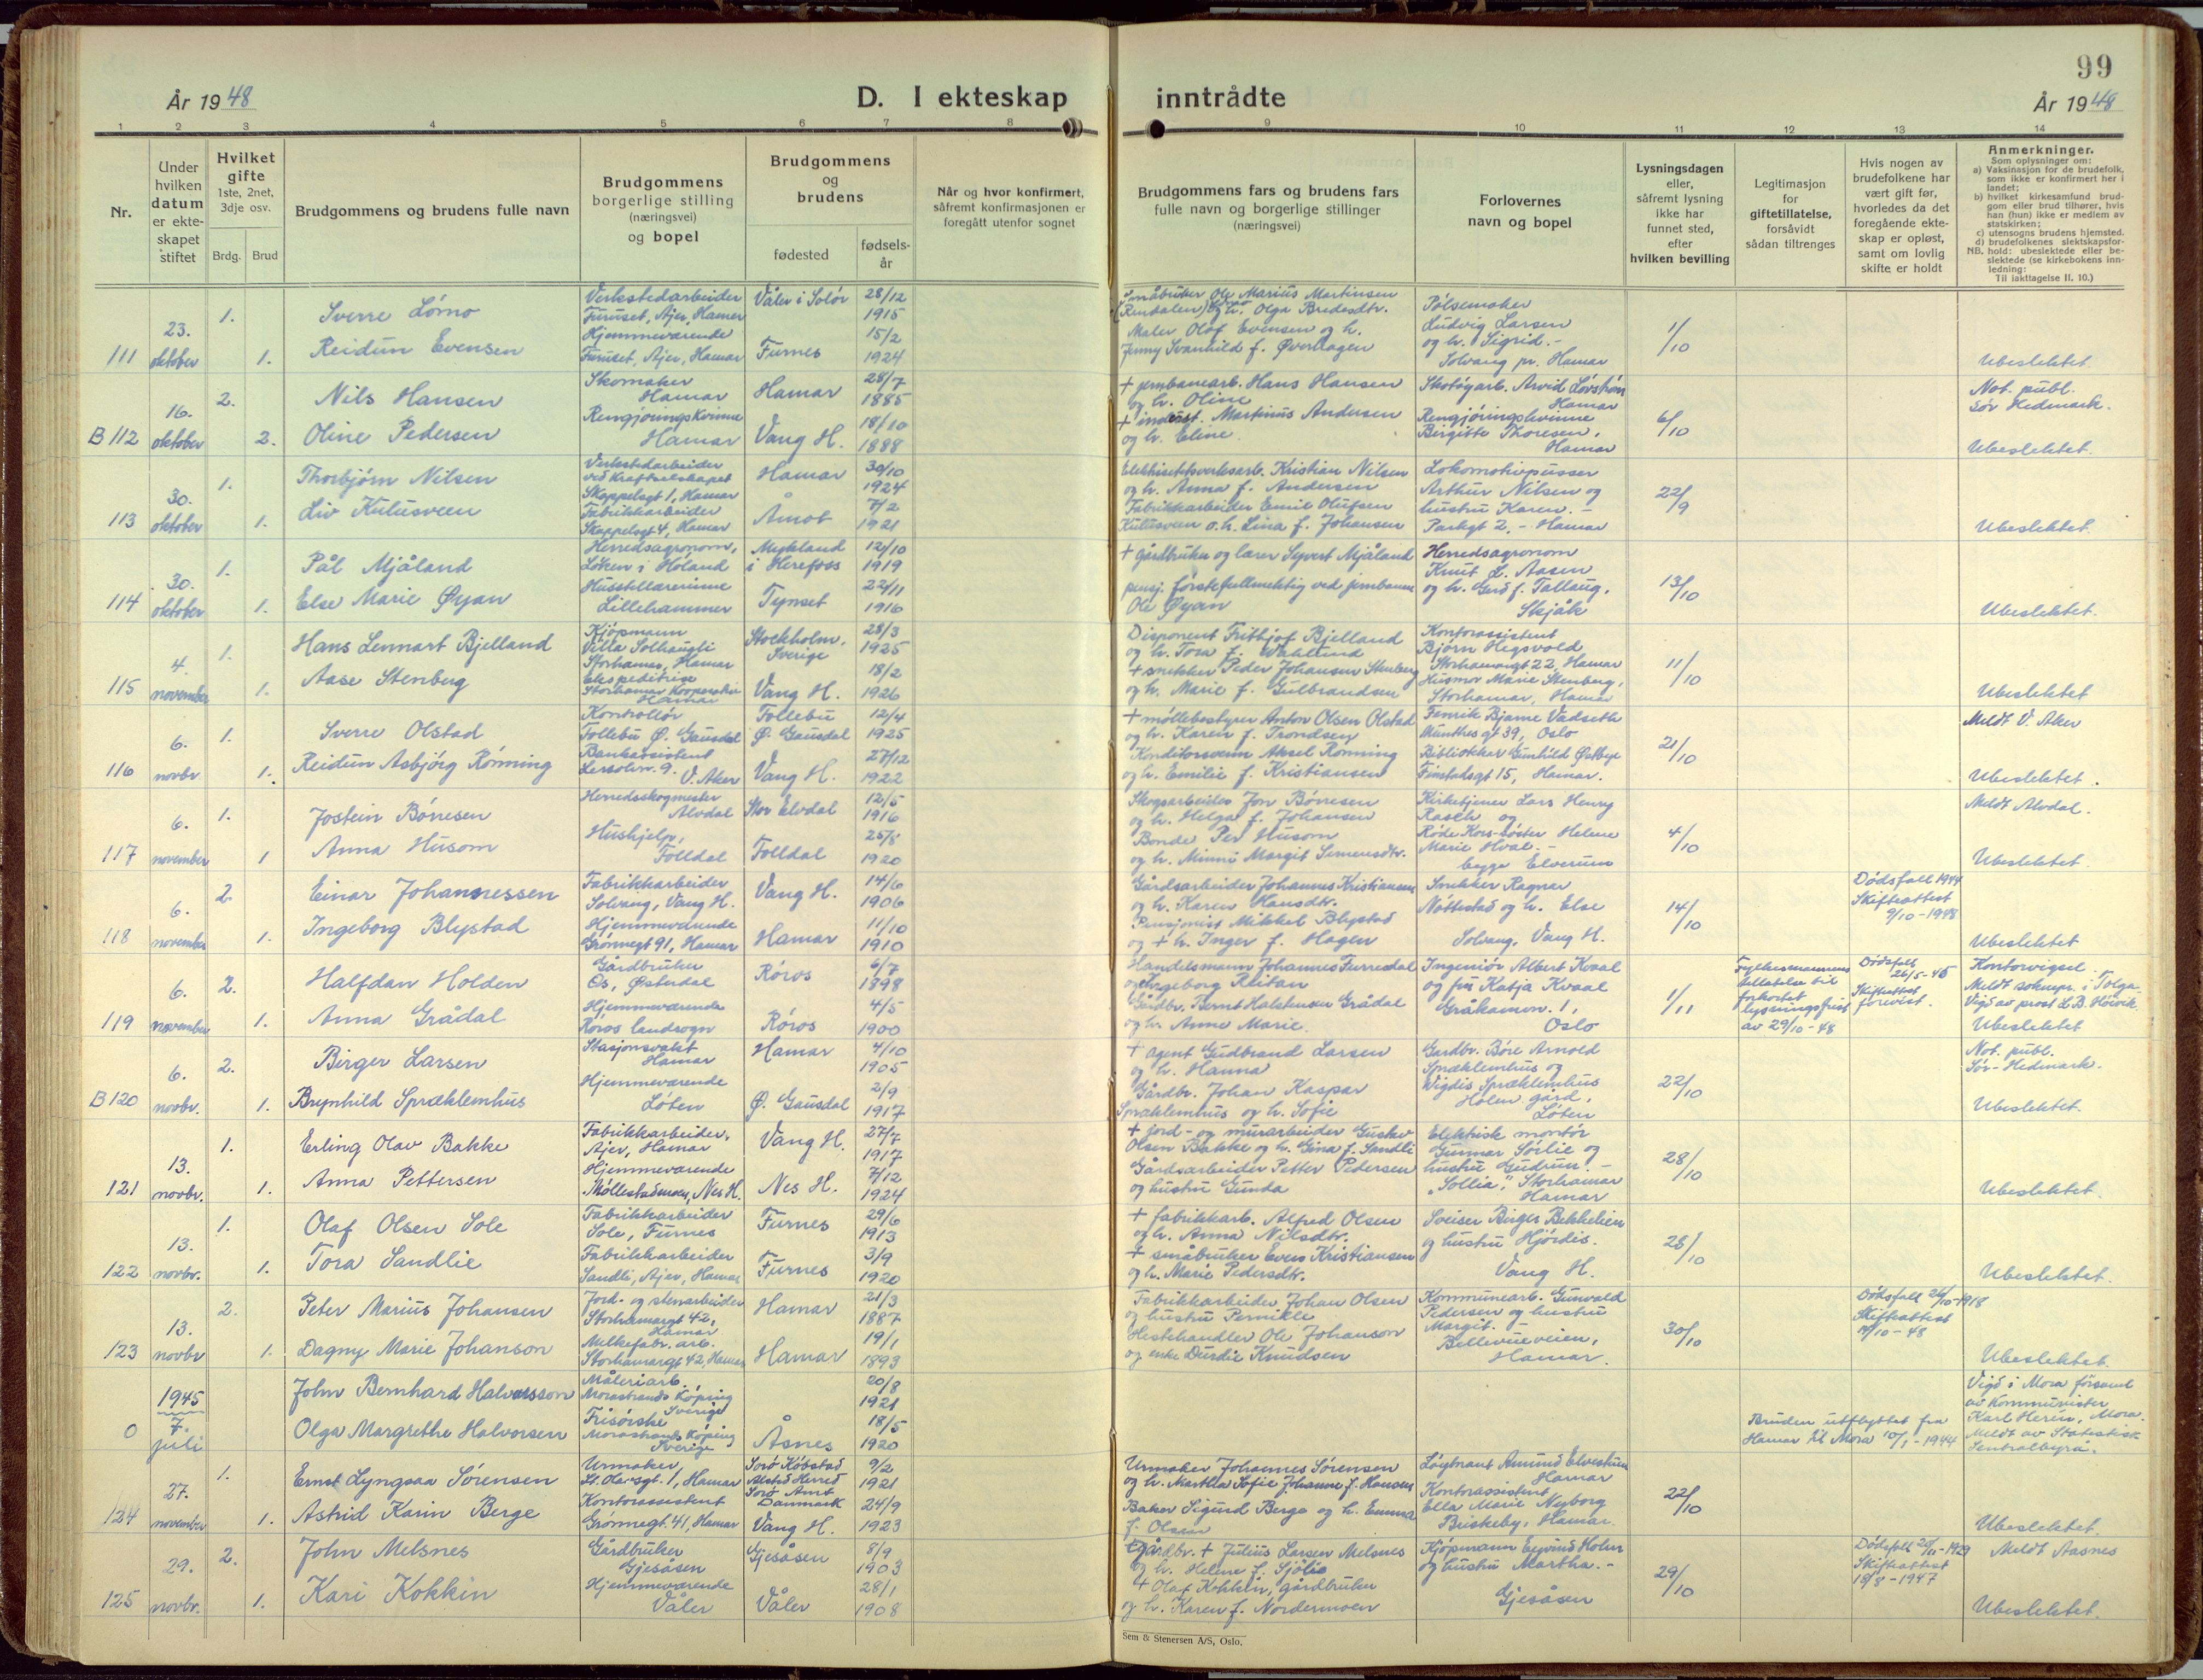 År 1948
D. I ekteskap
inntrådte
99
År 1948
1 2 3 4 5 6 7 8 9 10 11 12 13 14
Nr.
Under
hvilken
datum
er ekte-
skapet
stiftet
Hvilket
gifte
1ste, 2net,
3dje osv.
Brdg. Brud
Brudgommens og brudens fulle navn
Brudgommens
borgerlige stilling
(næringsvei)
og bopel
Brudgommens
og
brudens
fødested
fødsels-
år
Når og hvor konfirmert,
såfremt konfirmasjonen er
foregått utenfor sognet
Brudgommens fars og brudens fars
fulle navn og borgerlige stillinger
(næringsvei)
Forlovernes
navn og bopel
Lysningsdagen
eller,
såfremt lysning
ikke har
funnet sted,
efter
hvilken bevilling
Legitimasjon
for
giftetillatelse,
forsåvidt
sådan tiltrenges
Hvis nogen av
brudefolkene har
vært gift før,
hvorledes da det
foregående ekte-
skap er opløst,
samt om lovlig
skifte er holdt
Anmerkninger.
Som oplysninger om:
a) Vaksinasjon for de brudefolk,
som ikke er konfirmert her i
landet;
b) hvilket kirkesamfund brud-
gom eller brud tilhører, hvis
han (hun) ikke er medlem av
statskirken;
c) utensogns brudens hjemsted.
d) brudefolkenes slektskapsfor-
NB. hold: ubeslektede eller be-
slektede (se kirkebokens inn-
ledning:
Til iakttagelse II. 10.)
111
23.
oktober
1.
1.
Sverre Lømo
Reidun Evensen
Verkstedarbeider
Furuset, Ajer, Hamar
Hjemmeværende
Furuset, Ajer, Hamar
Våler i Solør
Furnes
28/12
1915
15/2
1924
Småbruker Ole Marius Martinsen
og h. Olga Bredesdtr.
Maler Olaf Evensen og h.
Jenny Svanhild f. Øverhagen
Pølsemaker
Ludvig Larsen
og h. Sigrid.-
Solvang pr. Hamar
1/10
Ubeslektet.
B 112
16.
oktober
2.
2.
Nils Hansen
Oline Pedersen
Skomaker
Hamar
Rengjøringskvinne
Hamar
Hamar
Vang H.
28/7
1885
18/10
1888
+ jernbanearb. Hans Hansen
og h. Oline
Martinus Andersen
og h. Eline.
Skotøyarb. Arvid
Hamar
Rengjøringskvinne
Birgitte Thoresen,
Hamar
6/10
Not. publ.
Sør Hedmark.
Ubeslektet.
113
30.
oktober
1.
1.
Thorbjørn Nilsen
Liv Kulusveen
Verkstedarbeider
ved Kraftselskapet
Skappelsgt 1, Hamar
Fabrikkarbeider
Skappelsgt 4, Hamar
Hamar
Åmot
30/10
1924
7/2
1921
Elektrisitetsverksarb. Kristian Nilsen
og h. Anna f. Andersen
Fabrikkarbeider Emil Olufsen
Kulusveen o.h. Lina f. Johansen
Lokomotivpusser
Arthur Nilsen og
hustru Karen.-
Parkgt 2. - Hamar
22/9
Ubeslektet.
114
30.
oktober
1.
1.
Pål Mjåland
Else Marie Øyan
Herredsagronom,
Løken i Høland
Husstellærerinne
Lillehammer
Mykland
i Herefoss
Tynset
12/10
1919
22/11
1916
+ gårdbruker og lærer Syvert Mjåland
pensj. førstefullmektig ved jernbanen
Ole Øyan
Herredsagronom
Knut L. Aasen
og h. Gerd f. Tallaug,
Skjåk
13/10
Ubeslektet.
115
4.
november
1.
1.
Hans Lennart Bjelland
Aase Stenberg
Kjøpmann
Villa Solhaugli
Storhamar, Hamar
Ekspeditrise
Storhamar Kooperativ
Hamar
Stockholm,
Sverige
Vang H.
28/3
1925
18/2
1926
Disponent Frithjof Bjelland
og h. Tora f. Wahlund
+ snekker Peder Johansen Stenberg
og h. Marie f. Gulbrandsen
Kontorassistent
Bjørn Hegsvold
Storhamargt 22, Hamar
Husmor Marie Stenberg,
Storhamar, Hamar
11/10
Ubeslektet
116
6.
novbr.
1.
1.
Sverre Olstad
Reidun Asbjørg Rønning
Kontrollør
Follebu Ø. Gausdal
Bankassistent
Lersolvn. 9.
V. Aker
Follebu
Ø. Gausdal
Vang H.
12/4
1925
27/12
1922
+ møllebestyrer Anton Olsen Olstad
og h. Karen f. Trondsen
Konditorsvenn Aksel Rønning
og h. Emilie f. Kristiansen
Fenrik Bjarne Vadseth
Munthes gt 39, Oslo
Bibliotekar Gunhild Østbye
Finstadsgt 15, Hamar.
21/10
Meldt V. Aker
Ubeslektet.
117
6.
november
1.
1
Jostein Børresen
Anna Husom
Herredsskogmester
Alvdal
Hushjelp,
Folldal
Stor Elvdal
Folldal
12/5
1916
25/8
1920
Skogsarbeider Jon Børresen
og h. Helga f. Johansen
Bonde Per Husom
og h. Minni Margit Simensdtr.
Kirketjener Lars Henry
Rasch og
Røde Kors-søster Helene
Marie Hval.-
begge Elverum
4/10
Meldt Alvdal.
Ubeslektet.
118
6.
november
2.
1.
Einar Johannessen
Ingeborg Blystad
Fabrikkarbeider
Solvang, Vang H.
Hjemmeværende
Grønnegt 91, Hamar
Vang H.
Hamar
14/6
1906
11/10
1910
Gårdsarbeider Johannes Kristiansen
og h. Karen Hansdtr.
Pensjonist Mikkel Blystad
og + h. Inger f. Hagen
Snekker Ragnar
Nøttestad og h. Else
Solvang, Vang H.
14/10
Dødsfall 1944
Skifteattest
9/10 - 1948
Ubeslektet
119
6.
november
2.
1.
Halfdan Holden
Anna Grådal
Gårdbruker
Os, Østerdal
Hjemmeværende
Røros landsogn
Røros
Røros
6/7
1898
4/5
1900
Handelsmann Johannes Furredal
og Ingeborg Reitan
Gårdbr. Bernt Halstensen Grådal
og h. Anne Marie.
Ingeniør Albert Kvaal
og fru Katja Kvaal
Gråkamvn. 1,
Oslo
1/11
Fylkesmannens
tillatelse til
forkortet
lysningsfrist
av 29/10 - 48
Dødsfall
26/5 - 45
Skifteattest
forevist.
Kontorvigsel
Meldt soknepr. i Tolga.
Vigd av prost L.B. Høivik.
Ubeslektet
B 120
6.
novbr.
2.
1.
Birger Larsen
Brynhild Spræklemhus
Stasjonsvakt
Hamar
Hjemmeværende
Løten
Hamar
Ø. Gausdal
4/10
1905
2/9
1917
+ agent Gudbrand Larsen
og h. Hanna
Gårdbr. Johan Kaspar
Spræklemhus og h. Sofie
Gardbr. Børe Arnold
Spræklemhus og
Wigdis Spræklemhus
Holen gård,
Løten
22/10
Not. publ.
Sør-Hedmark.
Ubeslektet.
121
13.
novbr.
1.
1.
Erling Olav Bakke
Anna Pettersen
Fabrikkarbeider,
Ajer, Hamar
Hjemmeværende
Møllestadmoen, Nes H.
Vang H.
Nes H.
27/7
1917
7/12
1924
+ jord- og murarbeider Gustav
Olsen Bakke og h. Gina f. Sandli
Gårdsarbeider Petter Pedersen
og hustru Gunda
Elektrisk montør
Gunnar Sørlie og
hustru Gudrun.-
"Sollia", Storhamar
Hamar
28/10
Ubeslektet.
122
13.
novbr.
1.
1.
Olaf Olsen Sole
Tora Sandlie
Fabrikkarbeider
Sole, Furnes
Fabrikkarbeider
Sandli, Ajer, Hamar
Furnes
Furnes
29/6
1913
3/9
1920
+ fabrikkarb. Alfred Olsen
og h. Anna Nilsdtr.
+ småbruker Even Kristiansen
og h. Marie Pedersdtr.
Sveiser Birger Bekkelien
og hustru Hjørdis.
Vang H.
28/10
Ubeslektet.
123
13.
novbr
2.
1.
Peter Marius Johansen
Dagny Marie Johanson
Jord- og stenarbeider
Storhamargt 42,
Hamar
Melkefabr. arb.
Storhamargt 42, Hamar
Hamar
Hamar
21/3
1887
19/1
1893
Fabrikkarbeider Johan Olsen
og hustru Pernille
Hestehandler Ole Johanson
og enke Durdie Knudsen
Kommunearb. Gunvald
Pedersen og hustru
Margit.-
Bellevueveien,
Hamar.
30/10
Dødsfall 26/10-1918
Skifteattest
/10 - 48
Ubeslektet
0
1945
7.
juli
John Bernhard Halvarsson
Olga Margrethe Halvorsen
Måleriarb.
Morastrands Köping
Sverige
Frisørske
Morastrands Köping
Sverige
Åsnes
20/8
1921
18/5
1920
Bruden utflyttet fra
Hamar til Mora 10/1 - 1944
Vigd i Mora församl.
av Komminister
Karl Herén, Mora.
Meldt av Statistisk
Sentralbyrå.
124
27.
november
1.
1.
Ernst Lyngsaa Sørensen
Astrid Karin Berge
Urmaker,
St. Olavsgt. 1, Hamar
Kontorassistent
Grønnegt. 41, Hamar
Sorø Købstad
Alsted Herred
Sorø Amt
Danmark
Vang H.
9/2
1921
24/9
1923
Urmaker Johannes Sørensen
og h. Martha Sofie Johanne f. Hansen
Baker Sigurd Berge og h. Emma
f. Olsen
Løytnant Amund Elvestuen
Hamar
Kontorassistent
Ella Marie Nyborg
Briskeby, Hamar.
22/10
Ubeslektet.
125
29.
novbr.
2.
1.
John Melsnes
Kari Kokkin
Gårdbruker
Gjesåsen
Hjemmeværende
Våler
Gjesåsen
Våler
8/9
1903
28/1
1908
Gårdbr. + Julius Larsen Melsnes
og h. Helene f. Sjølie
+ Olaf Kokkin, gårdbruker
og h. Karen f. Nordermoen
Kjøpmann Eyvind Holm
og hustru Martha.-
Gjesåsen
29/10
Dødsfall 20/11-1929
Skifteattest
18/8 - 1947
Meldt Aasnes
Ubeslektet.
Sem & Stenersen A/S, Oslo.